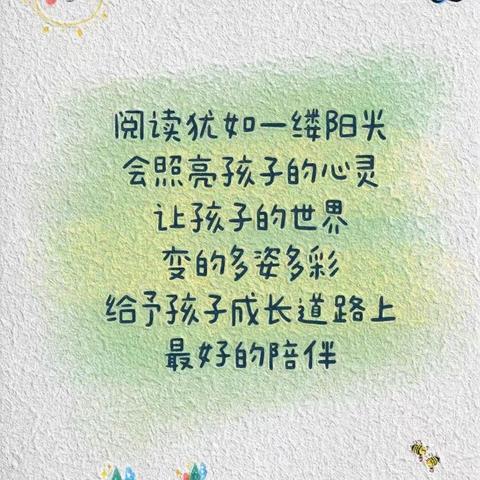 阅读犹如一缕阳光
会照亮孩子的心灵
让孩子的世界
变的多姿多彩
给予孩子成长道路上
最好的陪伴